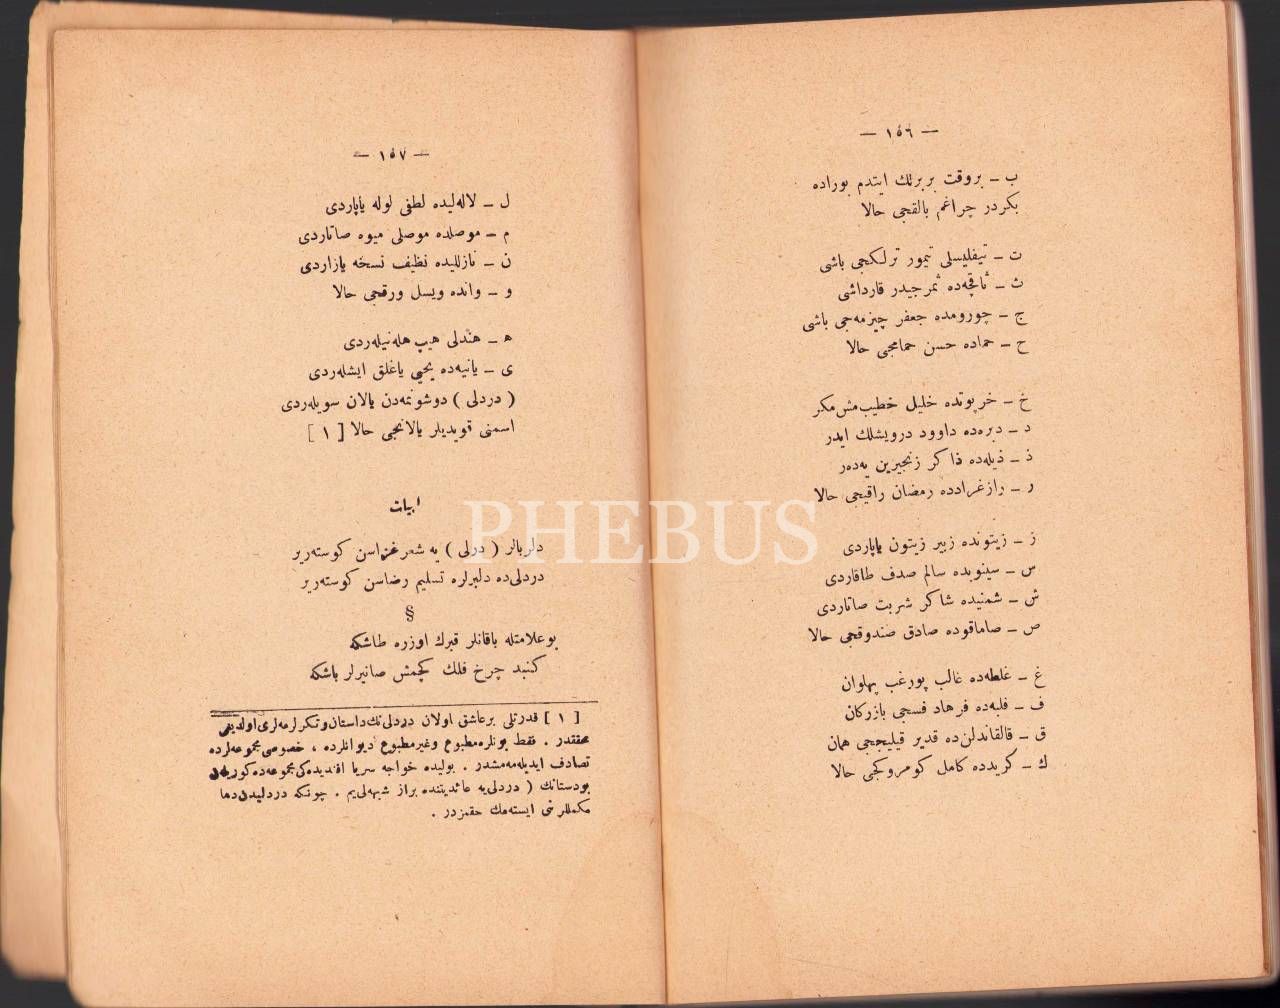 — ١٥٦ —
ب – بروقت بربرلك ایتدم بوراده
بكردر چراغم بالقجی حالا
ت – تیفلیسلی تیمور ترلكجی باشی
ث – ثاقچه‌ده ثمرجیدر قارداشی
ج – چورومده جعفر چیزمه‌جی باشی
ح – حماده حسن حمامجی حالا
خ – خرپوتده خلیل خطیب‌مش مكر
د – دیره‌ده داوود درویشلك ایدر
ذ – ذیله‌ده ذاكر زنجیرین یه‌ده‌ر
ر – رازغرادده رمضان راقیجی حالا
ز – زیتونده زبیر زیتون یاپاردی
س – سینوبده سالم صدف طاقاردی
ش – شمنیده شاكر شربت صاتاردی
ص – صاماقوده صادق صندوقجی حالا
غ – غلطه‌ده غالب پورغب پهلوان
ف – فلبه‌ده فرهاد فسجی بازركان
ق – قالقاندلن‌ده قدیر قیلیججی همان
ك – كریدده كامل كومروكجی حالا
— ١٥٧ —
ل – لاله‌لیده لطفی لوله یاپاردی
م – موصلده موصلی میوه صاتاردی
ن – نازللیده نظیف نسخه یازاردی
و – وانده ویسل ورقجی حالا
ه – هندلی هیپ هله‌نیله‌ردی
ی – یانیه‌ده یحیی یاغلق ایشله‌ردی
( دردلی ) دوشونمه‌دن یالان سویله‌ردی
اسمنی قویدیلر یالانجی حالا [ ١ ]
ابیات
دلربالر ( درلی ) یه شعر غزاسن كوسته‌ریر
دردلی‌ده دلبرلره تسلیم رضاسن كوسته‌ریر
§
بوعلامتله باقانلر قبرك اوزره طاشكه
كنبد چرخ فلك كچمش صانیرلر باشكه
[ ١ ] قدرتلی برعاشق اولان دردلی‌نك داستان وتكرلرمه‌لری اولدیغی
محققدر . فقط بونلره مطبوع وغیرمطبوع دیوانلرده ، خصوصی مجموعه‌لرده
تصادف ایدیله‌مه‌مشدر . بولیده خواجه سریما افندیده‌كی مجموعه‌ده كوریلن
بودستانك ( دردلی‌یه عائدیتنده براز شبهه‌لی‌یم . چونكه دردلیدن دها
مكمللرنی ایسته‌مك حقمزدر .
PHEBUS